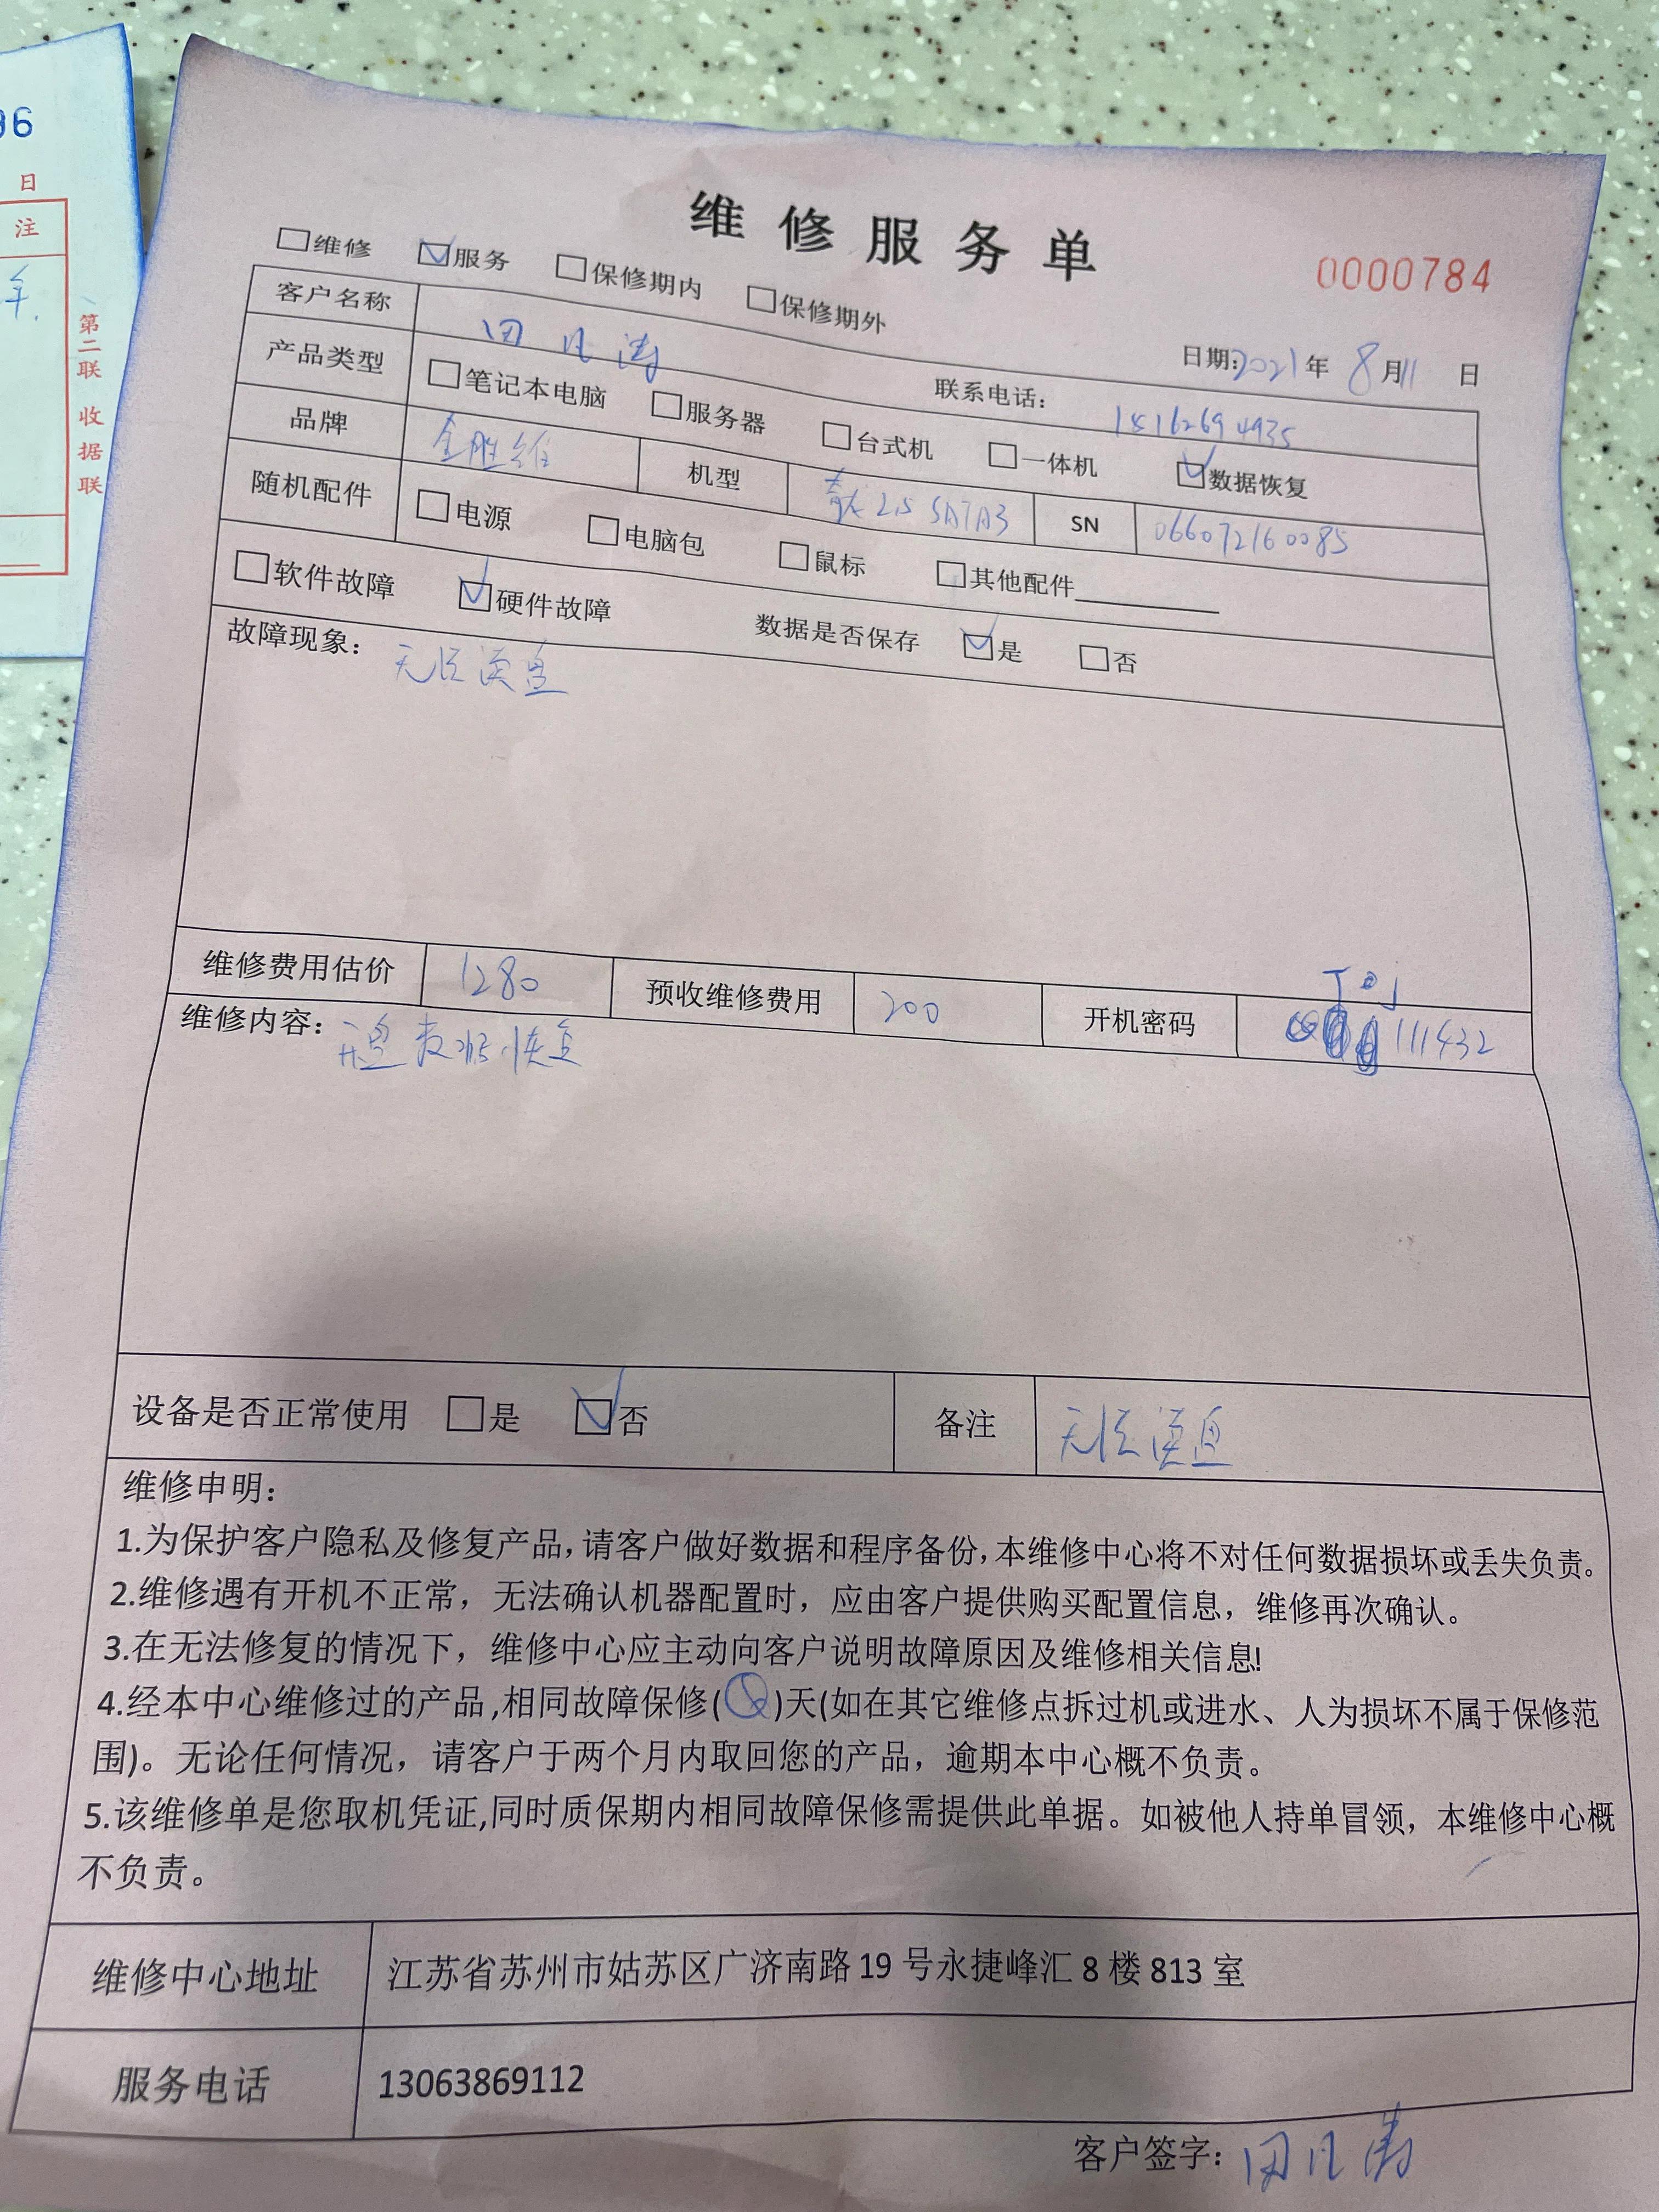 96
日
注
年.
第二联 收据联
维修服务单
0000784
□维修 ☑服务 □保修期内 □保修期外
日期:2021年 8月11日
客户名称 田凡涛 联系电话: 15162694935
产品类型 □笔记本电脑 □服务器 □台式机 □一体机 ☑数据恢复
品牌 金胜维 机型 2.5 SATA3 SN 066072160085
随机配件 □电源 □电脑包 □鼠标 □其他配件
□软件故障 ☑硬件故障 数据是否保存 ☑是 □否
故障现象: 无法读盘
维修费用估价 1280 预收维修费用 200 开机密码 111432
维修内容: 数据恢复
设备是否正常使用 □是 ☑否 备注 无法读盘
维修申明:
1.为保护客户隐私及修复产品,请客户做好数据和程序备份,本维修中心将不对任何数据损坏或丢失负责。
2.维修遇有开机不正常，无法确认机器配置时，应由客户提供购买配置信息，维修再次确认。
3.在无法修复的情况下，维修中心应主动向客户说明故障原因及维修相关信息!
4.经本中心维修过的产品,相同故障保修( )天(如在其它维修点拆过机或进水、人为损坏不属于保修范
围)。无论任何情况，请客户于两个月内取回您的产品，逾期本中心概不负责。
5.该维修单是您取机凭证,同时质保期内相同故障保修需提供此单据。如被他人持单冒领，本维修中心概
不负责。
维修中心地址 江苏省苏州市姑苏区广济南路19号永捷峰汇8楼813室
服务电话 13063869112
客户签字: 田凡涛